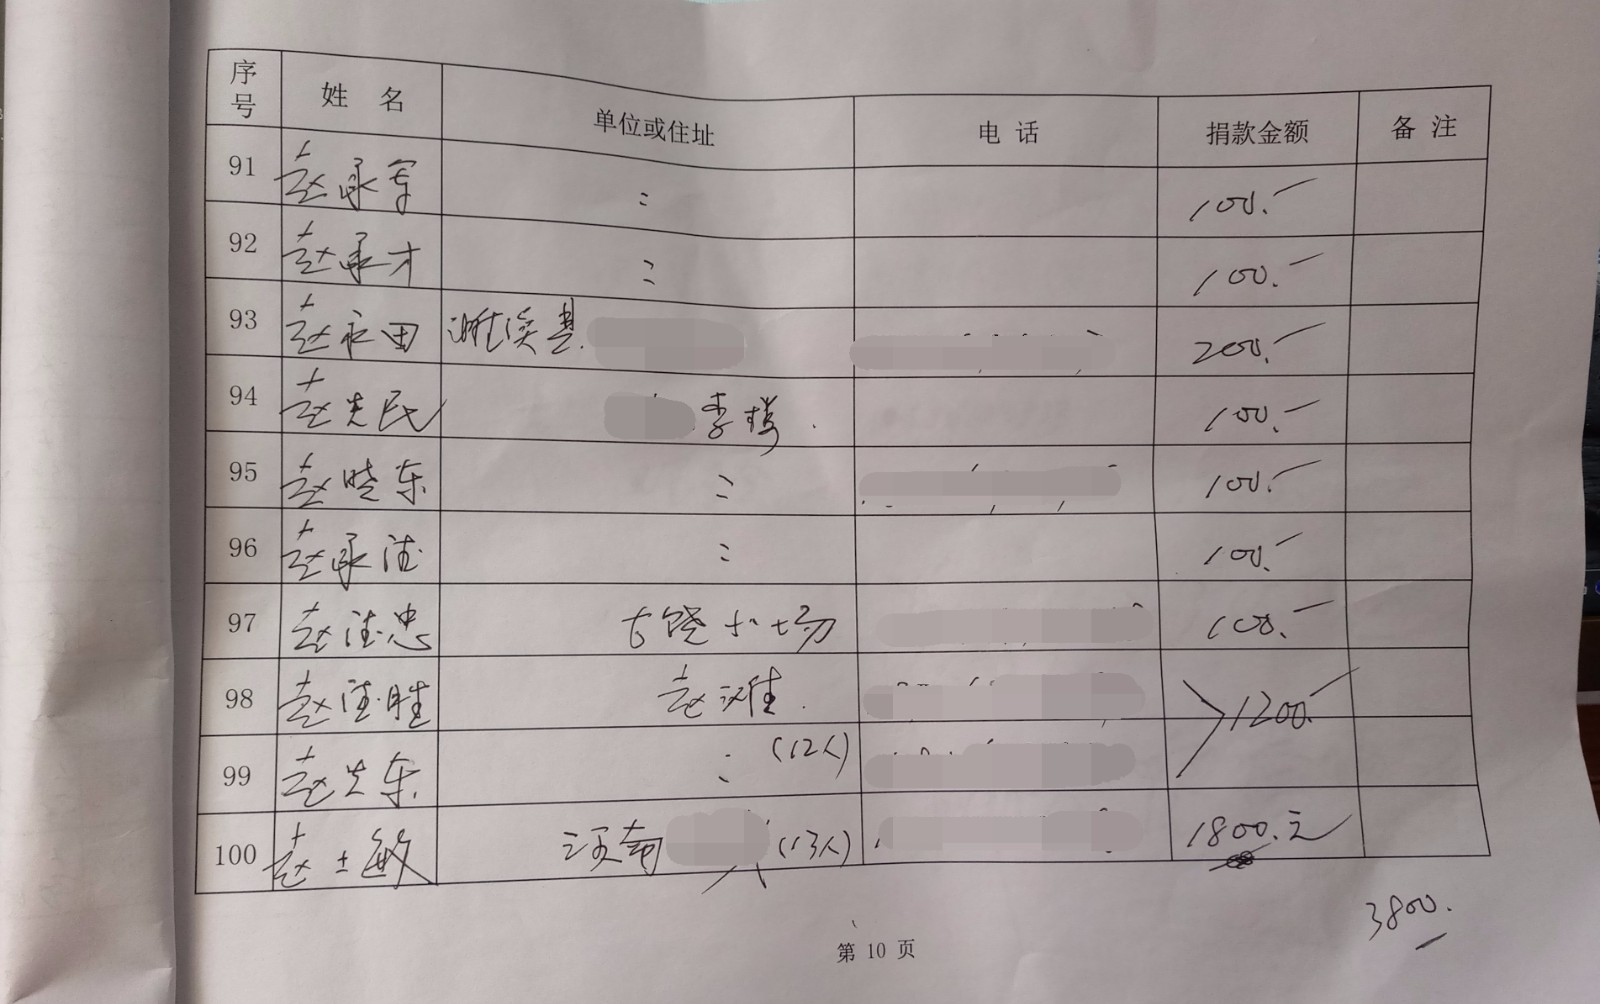 序号 姓 名 单位或住址 电 话 捐款金额 备 注
91 赵承军 〃 100.-
92 赵承才 〃 100.-
93 赵永田 濉溪县 200.-
94 赵先民 李楼. 100.-
95 赵晓东 〃 100.-
96 赵承法 〃 100.-
97 赵法忠 古饶小七场 100.-
98 赵法胜 赵滩. 1200.-
99 赵先东 〃 (12人)
100 赵士敏 河南 (13人) 1800.元
3800.
第 10 页